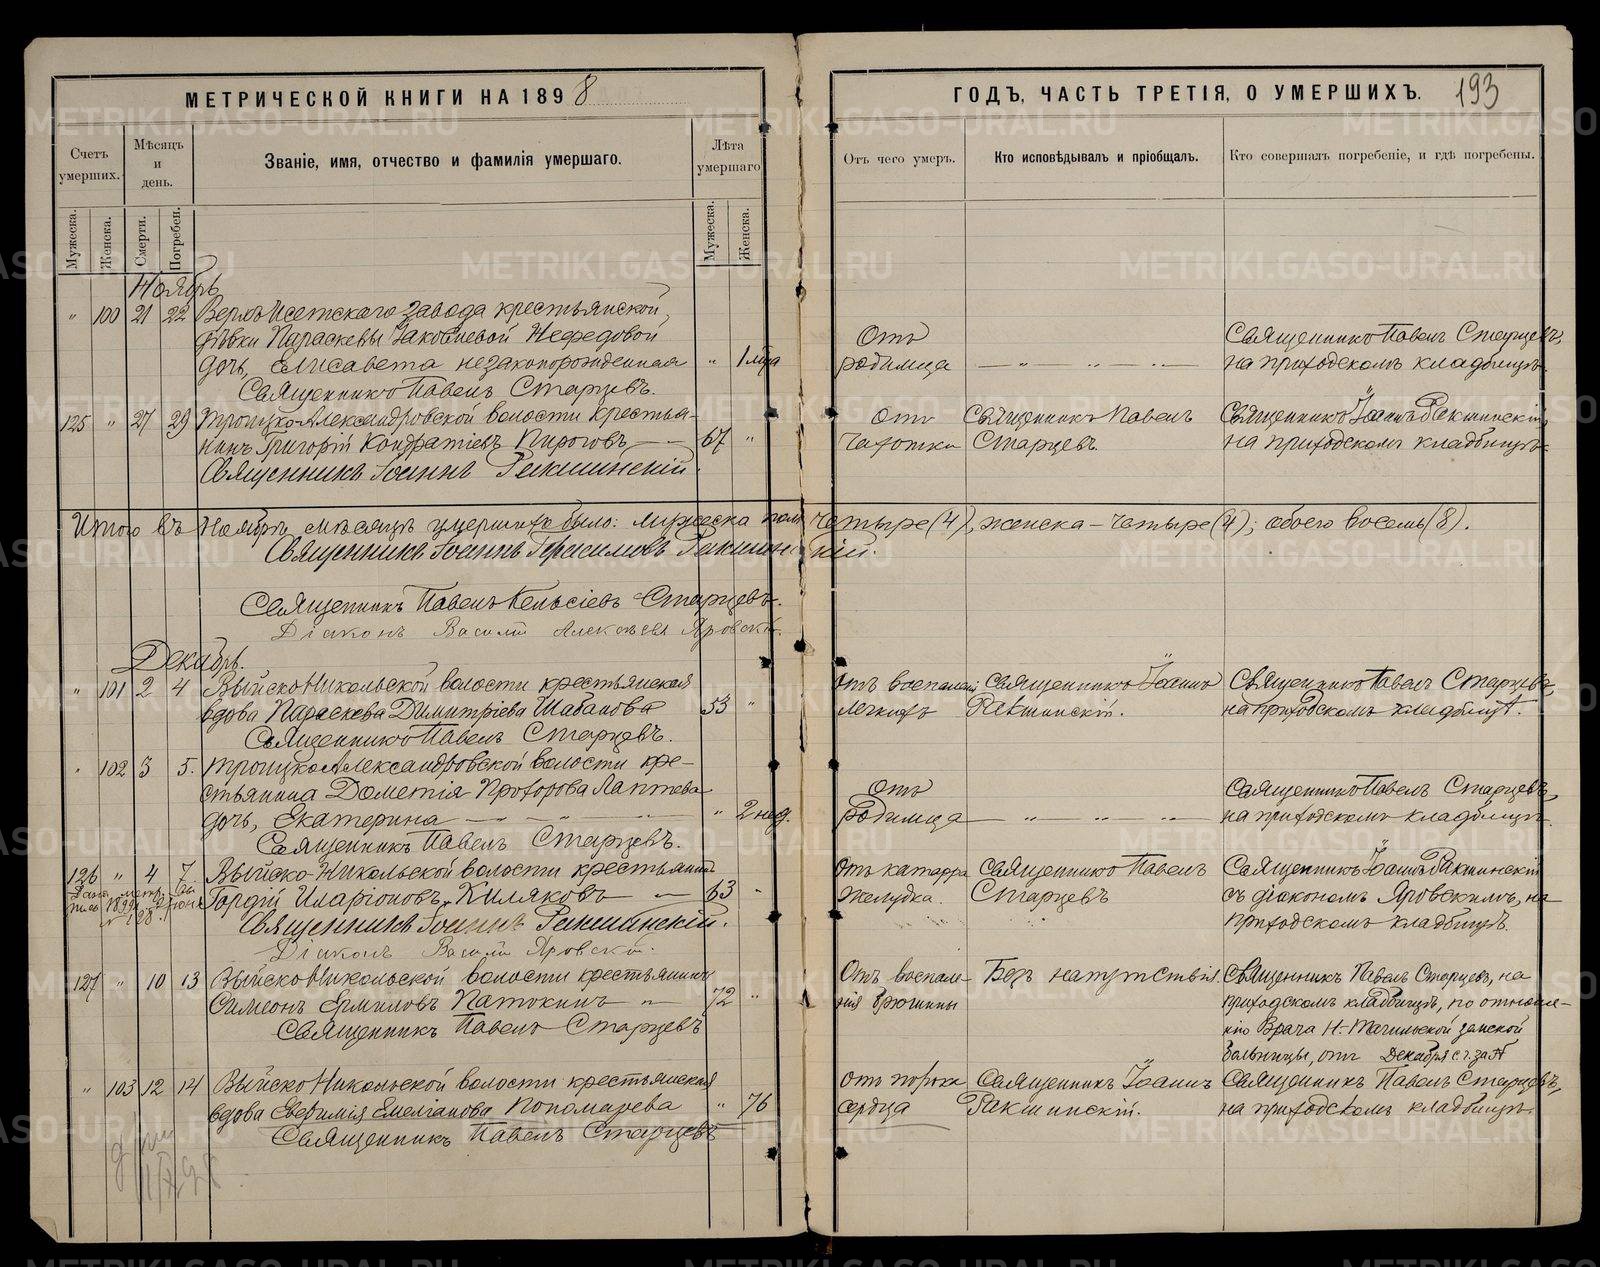 МЕТРИЧЕСКОЙ КНИГИ НА 1898
ГОДЪ, ЧАСТЬ ТРЕТІЯ, О УМЕРШИХЪ. 193
Счетъ умерших.
Мѣсяцъ и день.
Званіе, имя, отчество и фамилія умершаго.
Лѣта умершаго
Отъ чего умеръ.
Кто исповѣдывалъ и пріобщалъ.
Кто совершалъ погребеніе, и гдѣ погребены.
Мужеска.
Женска.
Смерти.
Погребен.
Мужеска.
Женска.
Ноябрь
" 100 21 22 Верхъ-Исетскаго завода крестьянской
дѣвки Параскевы Іаковлевой Нефедовой
дочь, Елисавета незаконорожденная " 1 мѣс.
Священникъ Павелъ Старцевъ.
Отъ
родимца
Священникъ Павелъ Старцевъ,
на приходскомъ кладбищѣ.
125 " 27 29 Троицко-Александровской волости крестья-
нинъ Григорій Кондратіевъ Пироговъ 67 "
Священникъ Іоаннъ Ракшинскій.
Отъ
чахотки
Священникъ Павелъ
Старцевъ.
Священникъ Іоаннъ Ракшинскій,
на приходскомъ кладбищѣ.
Итого въ Ноябрѣ мѣсяцѣ умершихъ было: мужеска пола четыре (4), женска – четыре (4); обоего восемь (8).
Священникъ Іоаннъ Герасимовъ Ракшинскій.
Священникъ Павелъ Кельсіевъ Старцевъ.
Діаконъ Василій Алексѣевъ Яровскій.
Декабрь.
" 101 2 4 Выйско-Никольской волости крестьянская
вдова Параскева Димитріева Шабанова 53 "
Священникъ Павелъ Старцевъ.
Отъ воспаленія
легкихъ
Священникъ Іоаннъ
Ракшинскій.
Священникъ Павелъ Старцевъ,
на приходскомъ кладбищѣ.
" 102 3 5. Троицко-Александровской волости кре-
стьянина Дометія Прохорова Лаптева
дочь, Екатерина " 2 нед.
Священникъ Павелъ Старцевъ.
Отъ
родимца
Священникъ Павелъ Старцевъ,
на приходскомъ кладбищѣ.
126 " 4 7 Выйско-Никольской волости крестьянинъ
Гордій Иларіоновъ Киляковъ 63 "
Священникъ Іоаннъ Ракшинскій.
Діаконъ Василій Яровскій.
Отъ катарра
желудка.
Священникъ Павелъ
Старцевъ
Священникъ Іоаннъ Ракшинскій
съ діакономъ Яровскимъ, на
приходскомъ кладбищѣ.
127 " 10 13 Выйско-Никольской волости крестьянинъ
Симеонъ Ермиловъ Патокинъ " 72 "
Священникъ Павелъ Старцевъ
Отъ воспале-
нія брюшины
Безъ напутствія.
Священникъ Павелъ Старцевъ, на
приходскомъ кладбищѣ, по отноше-
нію Врача Н.-Тагильской земской
больницы, отъ Декабря с. г. за №
" 103 12 14 Выйско-Никольской волости крестьянская
вдова Евфимія Емеліанова Пономарева " 76
Священникъ Павелъ Старцевъ
Отъ порока
сердца
Священникъ Іоаннъ
Ракшинскій.
Священникъ Павелъ Старцевъ,
на приходскомъ кладбищѣ.
METRIKI.GASO-URAL.RU